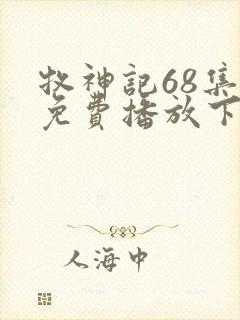 牧神記68集
免費播放下
人海中